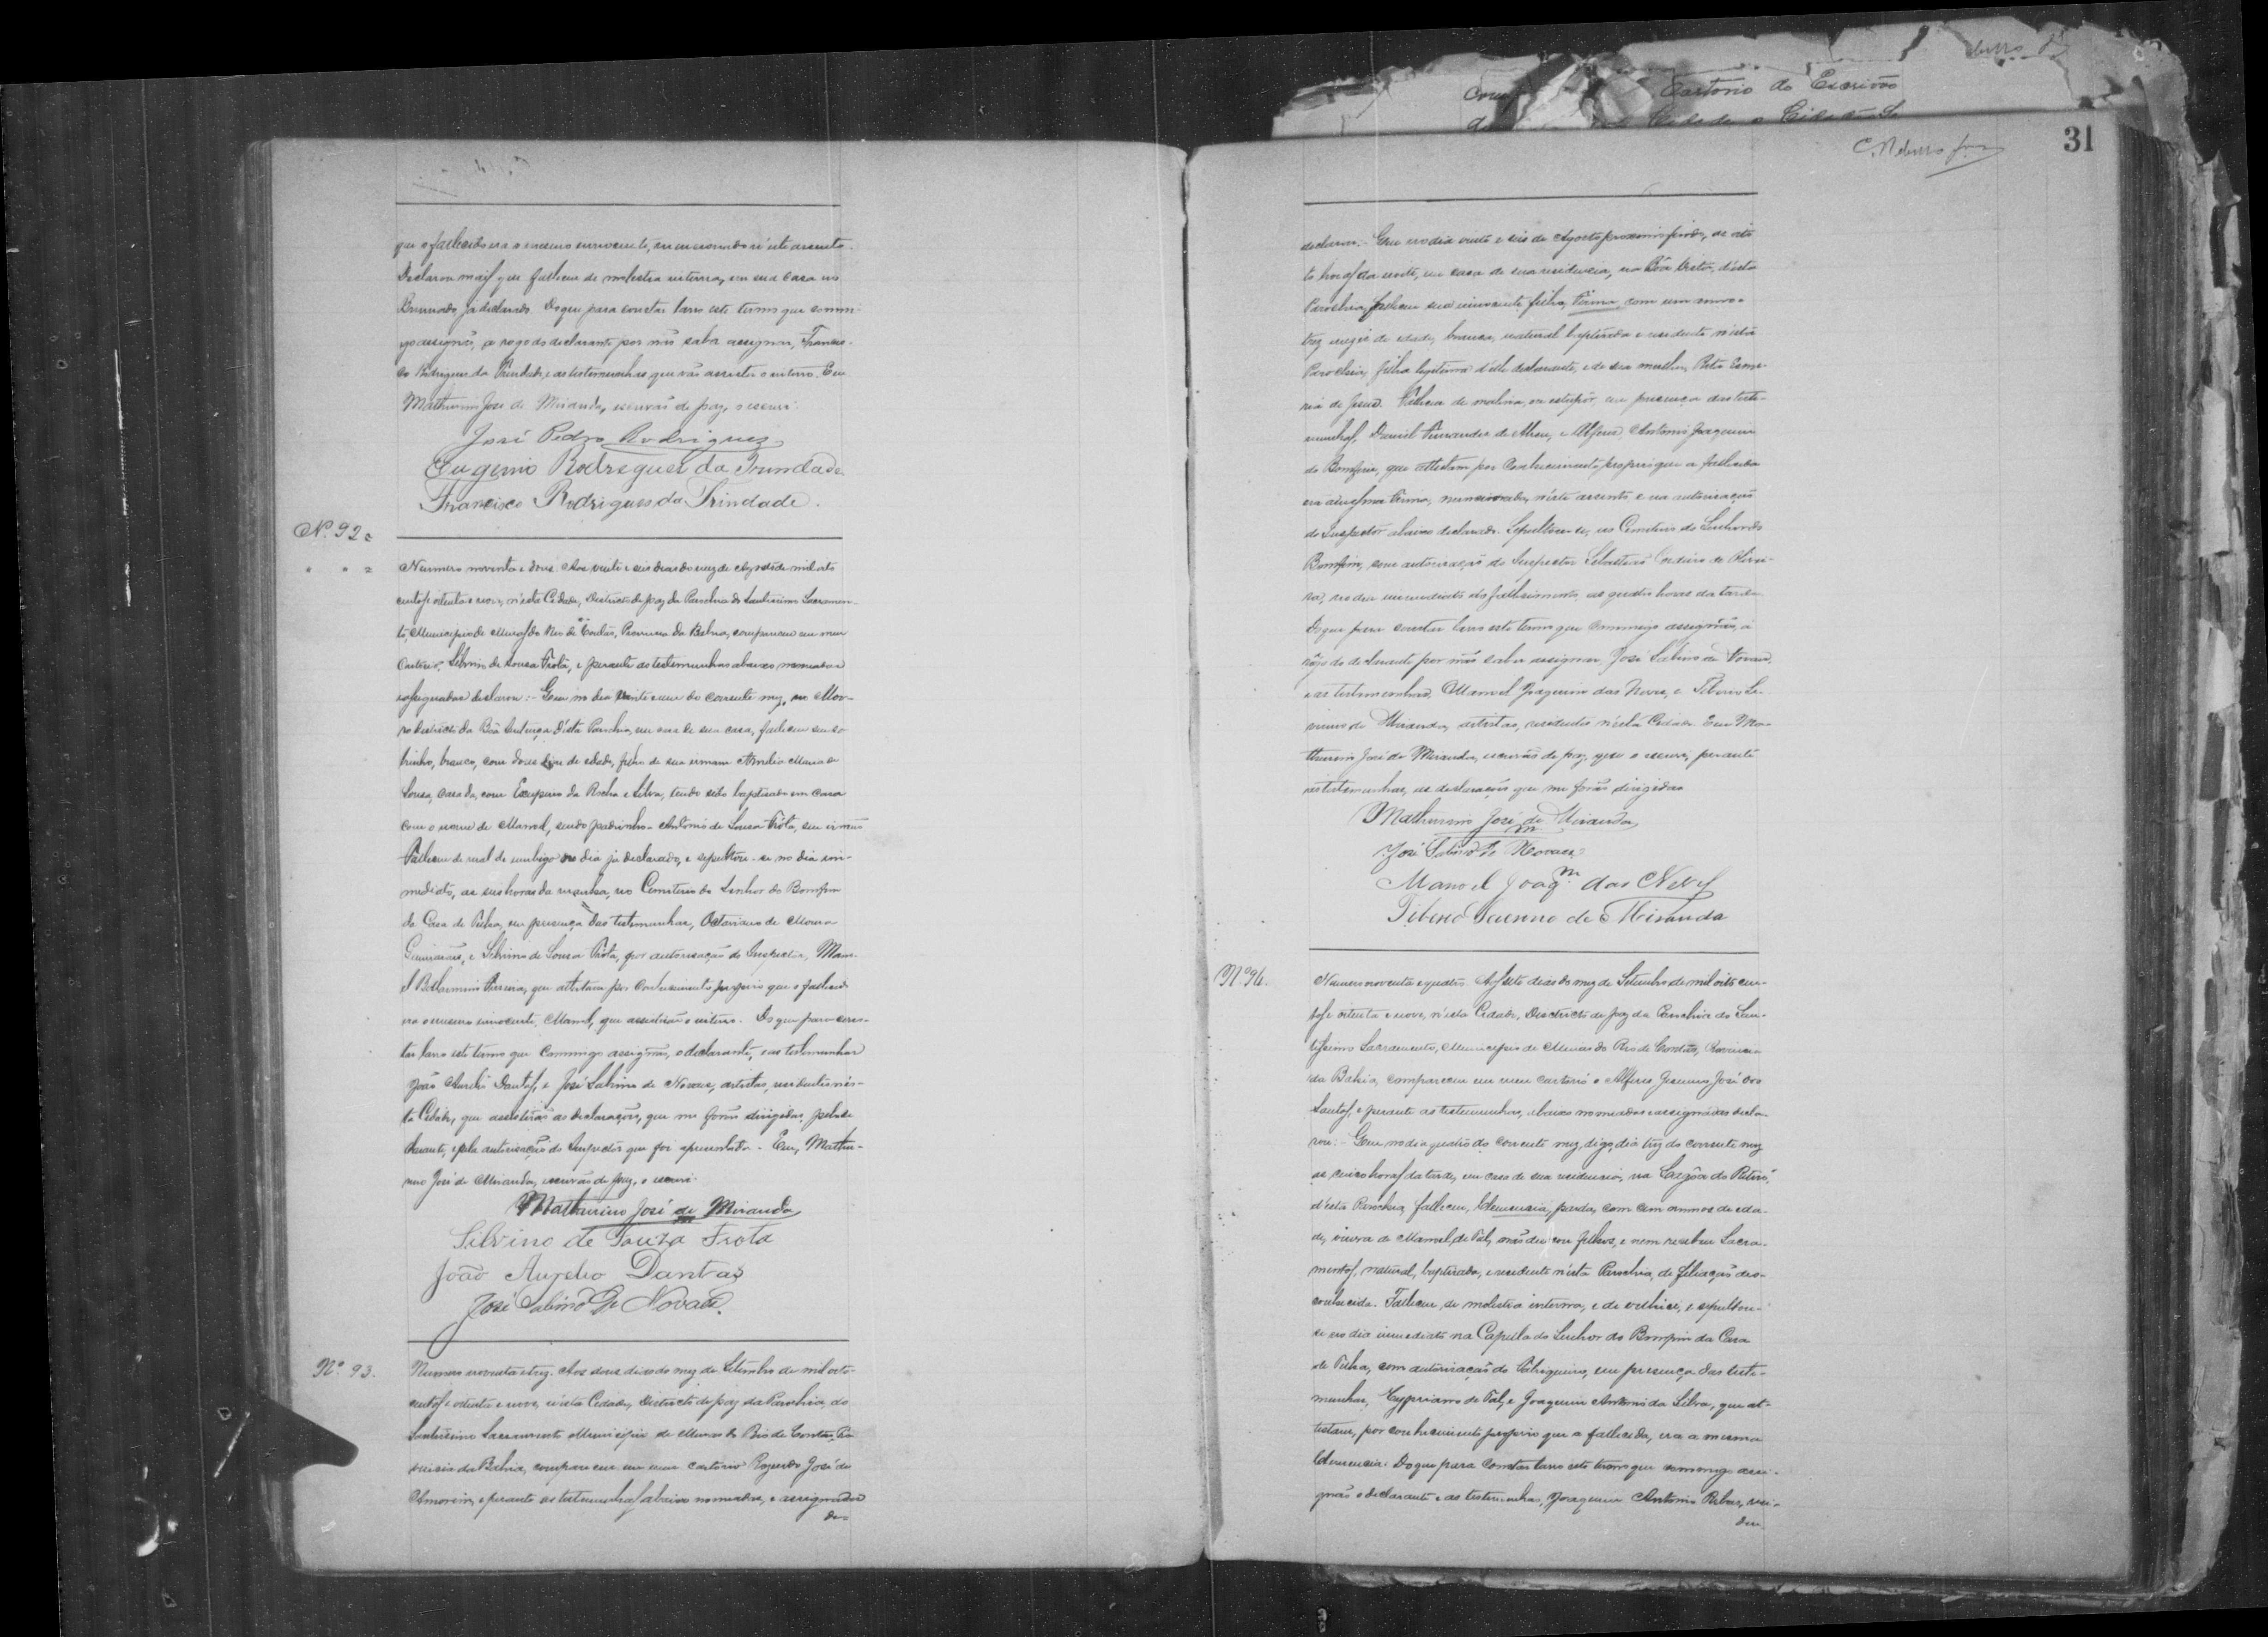 que o fallecido era o mesmo innocente, mencionado n'este assento.
Declarou mais que falleceu de molestia interna, em sua casa no
Brumado, já declarado. Do que para constar lavro este termo que commi-
go assignão, a rogo do declarante por não saber assignar, Francis-
co Rodrigues da Trindade, e as testemunhas que vão assistir o enterro. Eu
Mathurino José de Miranda, escrivão de paz, o escrevi.
José Pedro Rodrigues
Eugenio Rodrigues da Trindade
Francisco Rodrigues da Trindade.
Nº 92
Numero noventa e dous. Aos vinte e seis dias do mez de Agosto de mil oito
centos e oitenta e nove, n'esta Cidade, Districto de paz da Parochia do Santissimo Sacramen-
to, Municipio de Minas do Rio de Contas, Provincia da Bahia, compareceu em meu
Cartorio, Silvino de Sousa Frota, e perante as testemunhas abaixo nomeadas
e assignadas declarou:- Que no dia vinte e um do corrente mez, no Mor-
ro districto da Bôa Sentença d'esta Parochia, em casa de sua casa, falleceu seu so-
brinho, branco, com dous dias de edade, filho de sua irman Amelia Maria de
Sousa, casada, com Exuperio da Rocha e Silva, tendo sido baptisado em casa
com o nome de Manoel, sendo padrinho Antonio de Sousa Frota, seu irmão
Falleceu de mal de umbigo no dia já declarado, e sepultou-se no dia im-
mediato, as seis horas da manhã, no Cemiterio do Senhor do Bomfim
da Casa de Telha, em presença das testemunhas, Octaviano de Moura
Guimarães, e Silvino de Sousa Frota, por autorisação do Inspector, Mano-
el Bellarmino Pereira, que attestam por conhecimento proprio que o fallecido
era o mesmo innocente, Manoel, que assistirão o enterro. Do que para cons-
tar lavro este termo que commigo assignão, o declarante, e as testemunhas
João Aurelio Dantas, e José Sabino de Novaes, artistas, residentes nes-
ta Cidade, que assistirão as declarações, que me forão dirigidas, pelo de-
clarante, e pela autorisação do Inspector que foi apresentada. Eu, Mathu-
rino José de Miranda, escrivão de paz, o escrevi.
Mathurino José de Miranda
Silvino de Souza Frota
João Aurelio Dantas
José Sabino de Novaes.
Nº 93.
Numero noventa e trez. Aos dous dias do mez de Setembro de mil oito
centos e oitenta e nove, n'esta Cidade, Districto de paz da Parochia, do
Santissimo Sacramento Municipio de Minas do Rio de Contas, Pro
vincia da Bahia, compareceu em meu cartorio Rozendo José de
Amorim, e perante as testemunhas abaixo nomeadas, e assignadas
de=
31
declarou:- Que no dia vinte e seis de Agosto proximo findo, as oi-
to horas da noite, em casa de sua residencia, na Bôa Vista, d'esta
Parochia, falleceu sua innocente filha, Firma, com um anno e
trez mezes de edade, branca, natural baptisada e residente n'esta
Parochia, filha legitima d'elle declarante, e de sua mulher, Rita Esme-
ria de Jesus. Falleceu de malina, ou estupôr em presença das teste-
munhas, Daniel Fernandes de Abreu, e Alferes Antonio Joaquim
do Bomfim, que attestam por conhecimento proprio que a fallecida
era a mesma Firma, mencionada, n'este assento e na autorisação
do Inspector abaixo declarado. Sepultou-se, no Cemiterio do Senhor do
Bomfim, com autorisação do Inspector Sebastião Cordeiro de Olivei-
ra, no dia immediato do fallecimento, as quatro horas da tarde.
Do que para constar lavro este termo que commigo assignão, a
rôgo do declarante por não saber assignar, José Sabino de Novaes,
e as testemunhas, Manoel Joaquim das Neves, e Tiberio Se-
vero de Miranda, artistas, residentes n'esta Cidade. Eu Ma-
thurino José de Miranda, escrivão de paz, que o escrevi, perante
as testemunhas, as declarações que me forão dirigidas
Mathurino José de Miranda
José Sabino de Novaes
Manoel Joaqm. das Neves
Tiberio de Miranda
Nº 94.
Numero noventa e quatro. Aos sete dias do mez de Setembro de mil oito cen-
tos e oitenta e nove, n'esta Cidade, Districto de paz da Parochia do San-
tissimo Sacramento, Municipio de Minas do Rio de Contas, Provincia
da Bahia, compareceu em meu cartorio o Alferes José dos
Santos, e perante as testemunhas, abaixo nomeadas e assignadas decla-
rou:- Que no dia quatro do corrente mez, digo, dia trez do corrente mez
as cinco horas da tarde, em casa de sua residencia, na Lagôa do
d'esta Parochia, falleceu, Clemencia, parda, com cem annos de eda-
de, viuva de Manoel de Tal, não deixou filhos, e nem recebeu Sacra-
mentos, natural, baptisada, e residente n'esta Parochia, de filiação des-
conhecida. Falleceu, de molestia interna, e de velhice, e sepultou-
se no dia immediato na Capella do Senhor do Bomfim da Casa
de Telha, com autorisação do em presença das teste-
munhas, Cypriano de Tal, e Joaquim Antonio da Silva, que at-
testam, por conhecimento proprio que a fallecida, era a mesma
Clemencia. Do que para constar lavro este termo que commigo assi-
gnão o declarante e as testemunhas, Joaquim Antonio Ribas, resi-
den